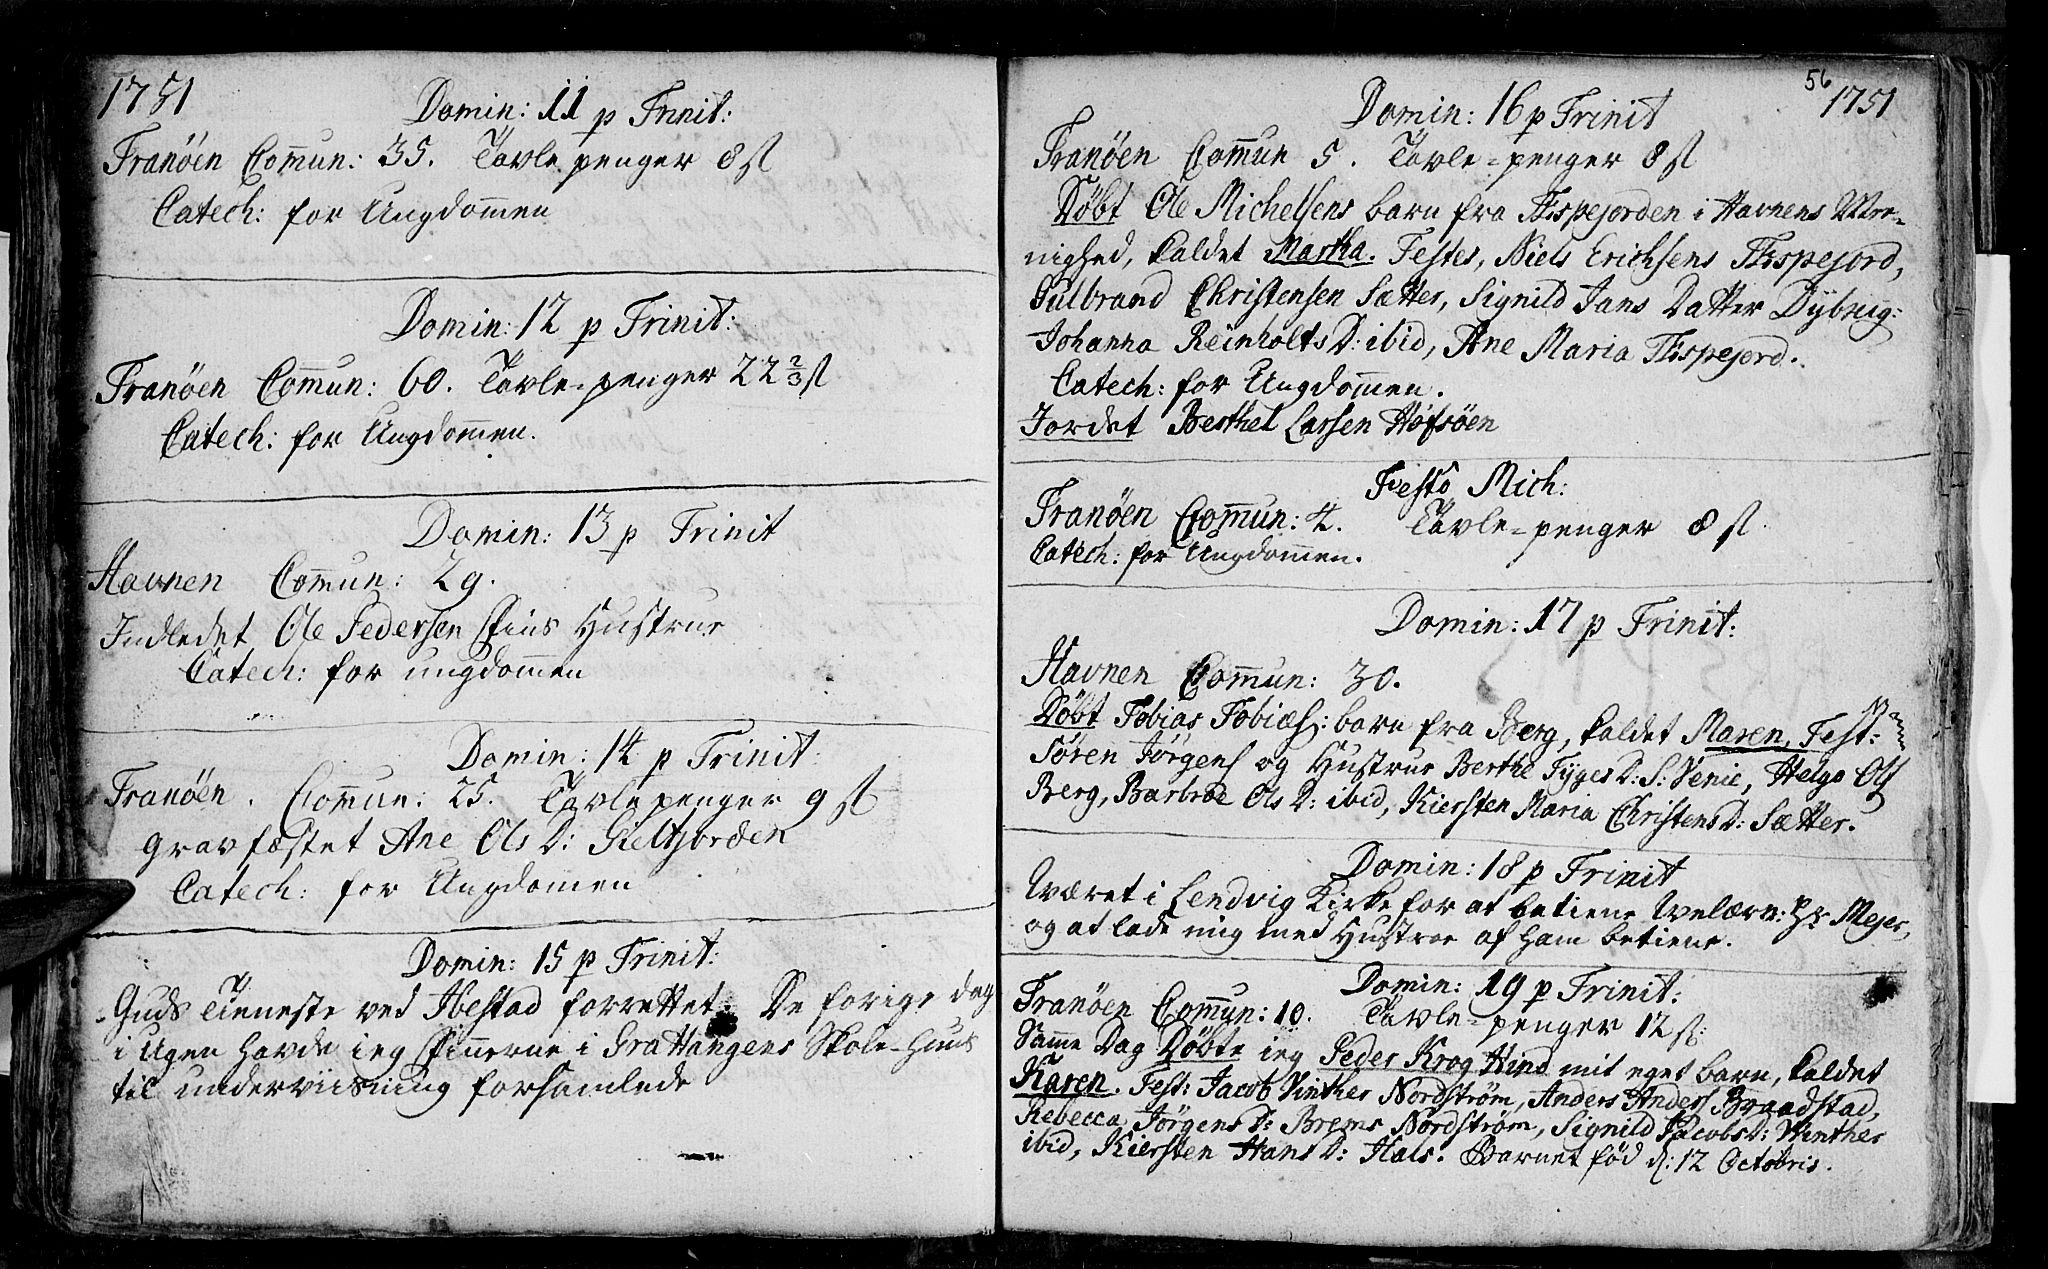 1751
Domin: 11 p Trinit:
Tranöen Com̄un: 35. Tavle penger 8 sl
Catech: for Ungdom̄en
Domin: 12 p Trinit:
Tranöen Com̄un: 60. Tavle-penger 22 2/3 sl
Catech: for Ungdom̄en.
Domin: 13 p Trinit
Havnen Com̄un: 29.
Indledet Ole Pedersen Fins Hustrue
Catech: for ungdom̄en
Domin: 14 p Trinit:
Tranöen. Com̄un: 25. Tavlepenger 9 sl
Gravfæstet Ane Ols D: Gieltfjorden
Catech: for Ungdomen
Domin: 15 p Trinit:
Guds Tieneste ved Ibestad forrettet. De forige dag
i Ugen havde ieg Finnerne i Grattangens Skole-Huus
til underviisning forsamlede
56
1751
Domin: 16 p Trinit
Tranöen Com̄un 5. Tavle-penger 8 sl
Döbt Ole Michelsens barn fra Tispejorden i Havnens Mee-
nighed, kaldet Martha. Testes, Niels Erichsens Tispejord,
Gulbrand Christensen Sætter, Signild Jans Datter Dÿbvig:
Johanna Reinholts D: ibid, Ane Maria Tispejord.
Catech: for Ungdom̄en.
Jordet Berthel Larsen Hofsöen
Festo Mich:
Tranöen Com̄un: 4. Tavle-penger 8 sl
Catech: for Ungdom̄en.
Domin: 17 p Trinit:
Havnen Com̄un: 30.
Döbt Tobias Tobiæs: barn fra Berg, kaldet Maren, Test:
Sören Jörgens og Hustrue Berthe Tÿges D: S: Venie, Helge Ols
Berg, Barbroe Ols D: ibid, Kiersten Maria Christens D: Sætter.
Domin: 18 p Trinit
Været i Lendvig Kirke for at betiene Velærv: Hr Mejer,
og at lade mig med Hustroe af ham betiene.
Domin: 19 p Trinit:
Tranöen Com̄un: 10. Tavle-penger 12 sl:
Sam̄e Dag Döbte ieg Peder Krog Hind mit eget barn, kaldet
Karen. Test: Jacob Vinther Nordström, Anders Anders Braadstad,
Rebecca Jörgens D: Brems Nordström, Signild Jacobs D: Winther
ibid, Kiersten Hans D: Hals. Barnet föd d: 12 Octobris.